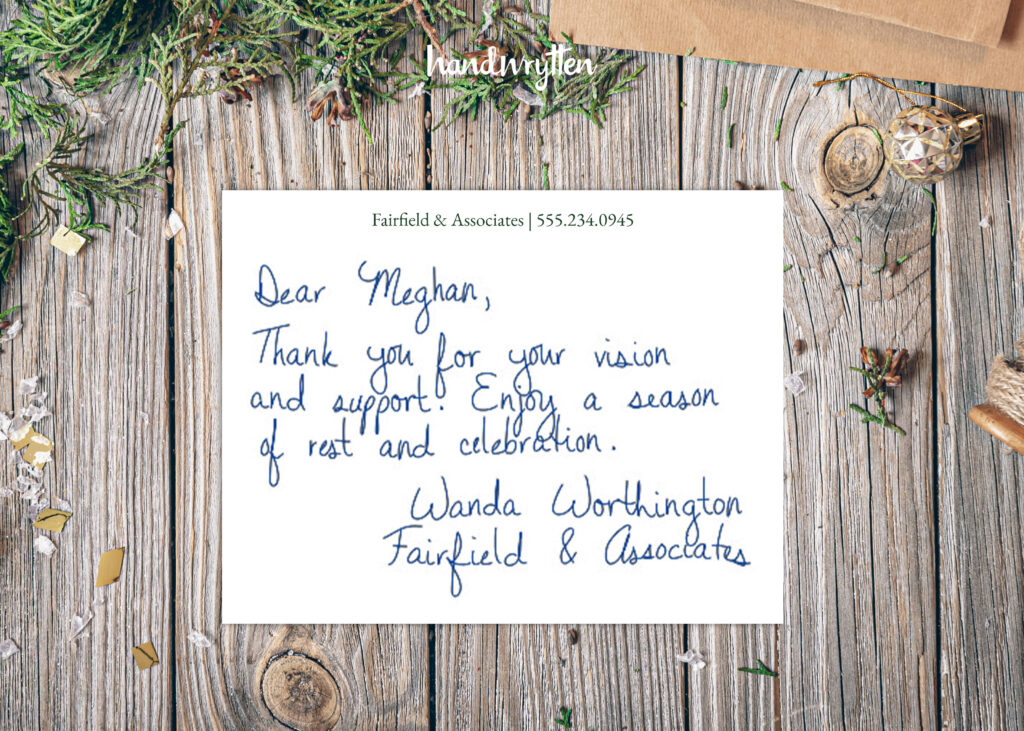 handwrytten
Fairfield & Associates | 555.234.0945
Dear Meghan,
Thank you for your vision
and support! Enjoy a season
of rest and celebration.
Wanda Worthington
Fairfield & Associates